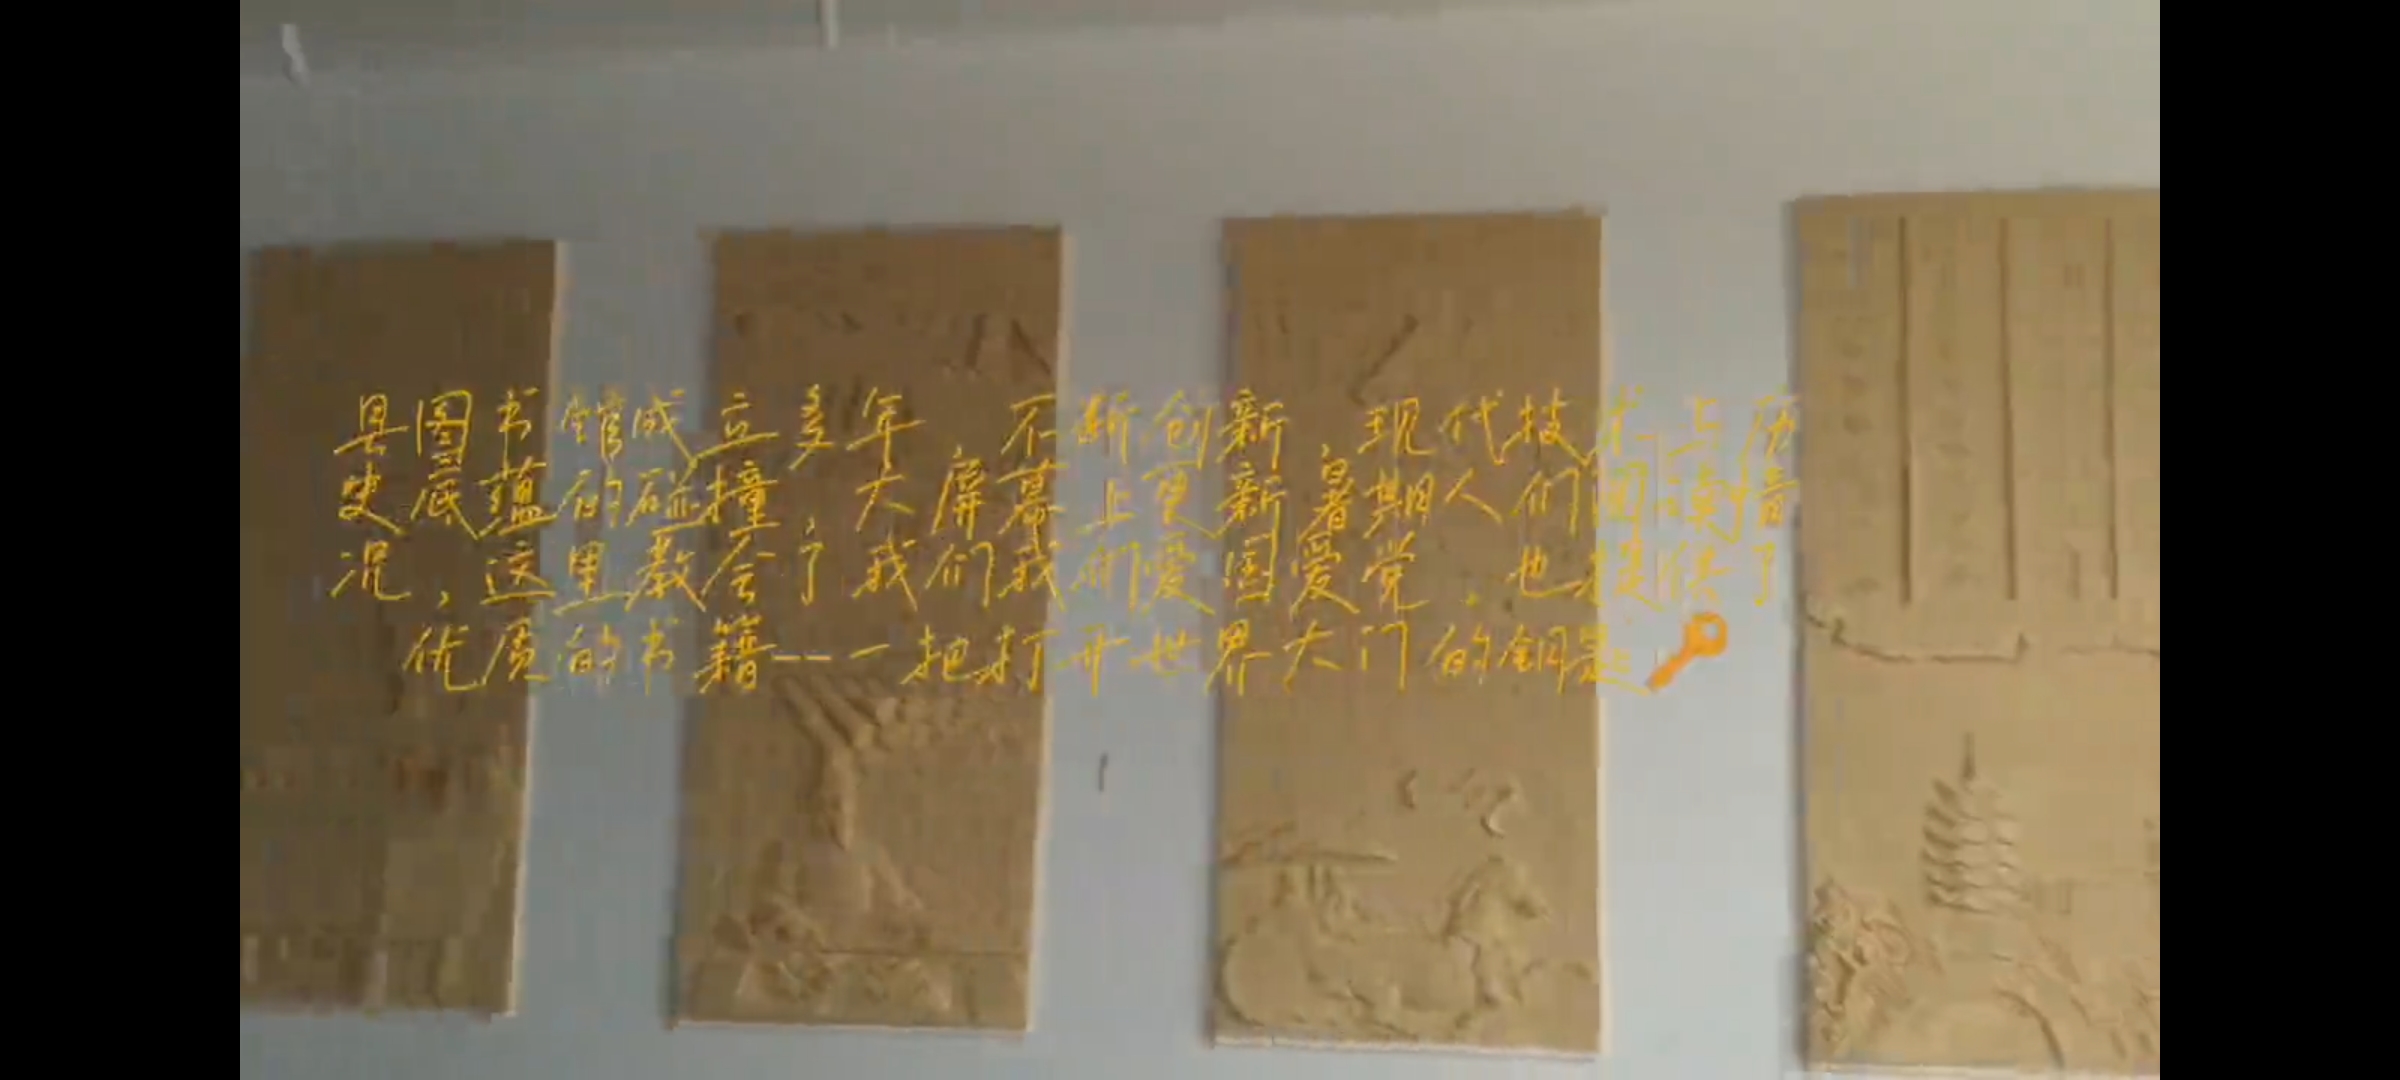 县图书馆成立多年，不断创新，现代技术与历
史底蕴的碰撞，大屏幕上更新暑期人们阅读情
况，这里教会了我们我们爱国爱党，也提供了
优质的书籍--一把打开世界大门的钥匙🔑